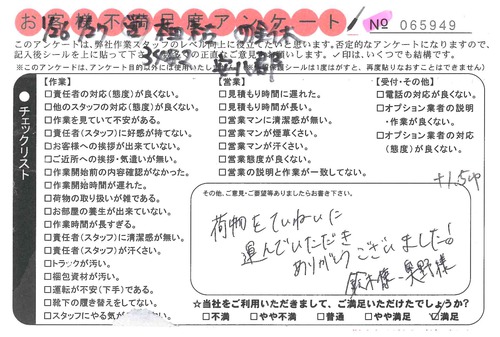 お客様不満足度アンケート
No 065949
このアンケートは、弊社作業スタッフのレベル向上に役立てたいと思います。否定的なアンケートになりますので、
記入後シールを上に貼って下さい。お客様の正直なご意見をお願いします。✓印は、いくつでも結構です。
※このアンケートは、アンケート目的以外には使用いたしません。(保護シールは1度はがすと、再度貼りなおすことはできません)
チェックリスト
【作業】
□責任者の対応(態度)が良くない。
□他のスタッフの対応(態度)が良くない。
□作業を見ていて不安がある。
□責任者(スタッフ)に好感が持てない。
□お客様への挨拶が出来ていない。
□ご近所への挨拶・気遣いが無い。
□作業開始前の内容確認がなかった。
□作業開始時間が遅れた。
□荷物の取り扱いが雑である。
□お部屋の養生が出来ていない。
□作業時間が長すぎる。
□責任者(スタッフ)に清潔感が無い。
□責任者(スタッフ)が汗くさい。
□トラックが汚い。
□梱包資材が汚い。
□運転が不安(下手)である。
□靴下の履き替えをしてない。
□スタッフにやる気が
【営業】
□見積もり時間に遅れた。
□見積もり時間が長い。
□営業マンに清潔感が無い。
□営業マンが煙草くさい。
□営業マンが汗くさい。
□営業態度が良くない。
□営業の説明と作業が一致してない。
【受付・その他】
□電話の対応が良くない。
□オプション業者の説明
・作業が良くない。
□オプション業者の対応
(態度)が良くない。
+1.5up
その他、ご意見・ご要望等ありましたらお書き下さい。
荷物をていねいに
運んでいただき
ありがとうございました!
鈴木様 奥野様
☆当社をご利用いただきまして、ご満足いただけたでしょうか?
□不満 □やや不満 □普通 □やや満足 ☑満足